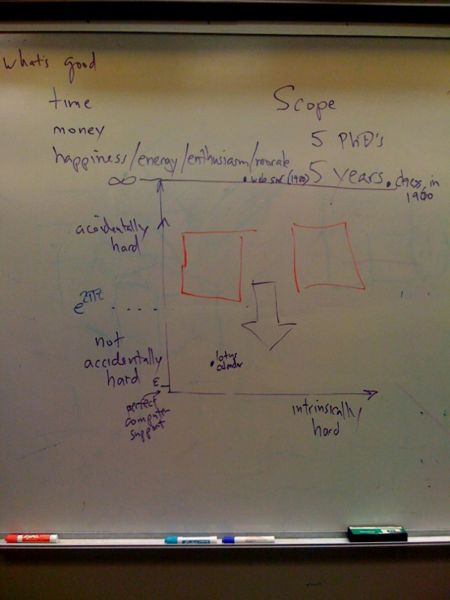 what's good
time
money
happiness/energy/enthusiasm/morale
Scope
5 PhD's
5 years
∞
• web surf (1980)
• chess in
1900
accidentally
hard
not
accidentally
hard
ε
perfect
computer
support
intrinsically
hard